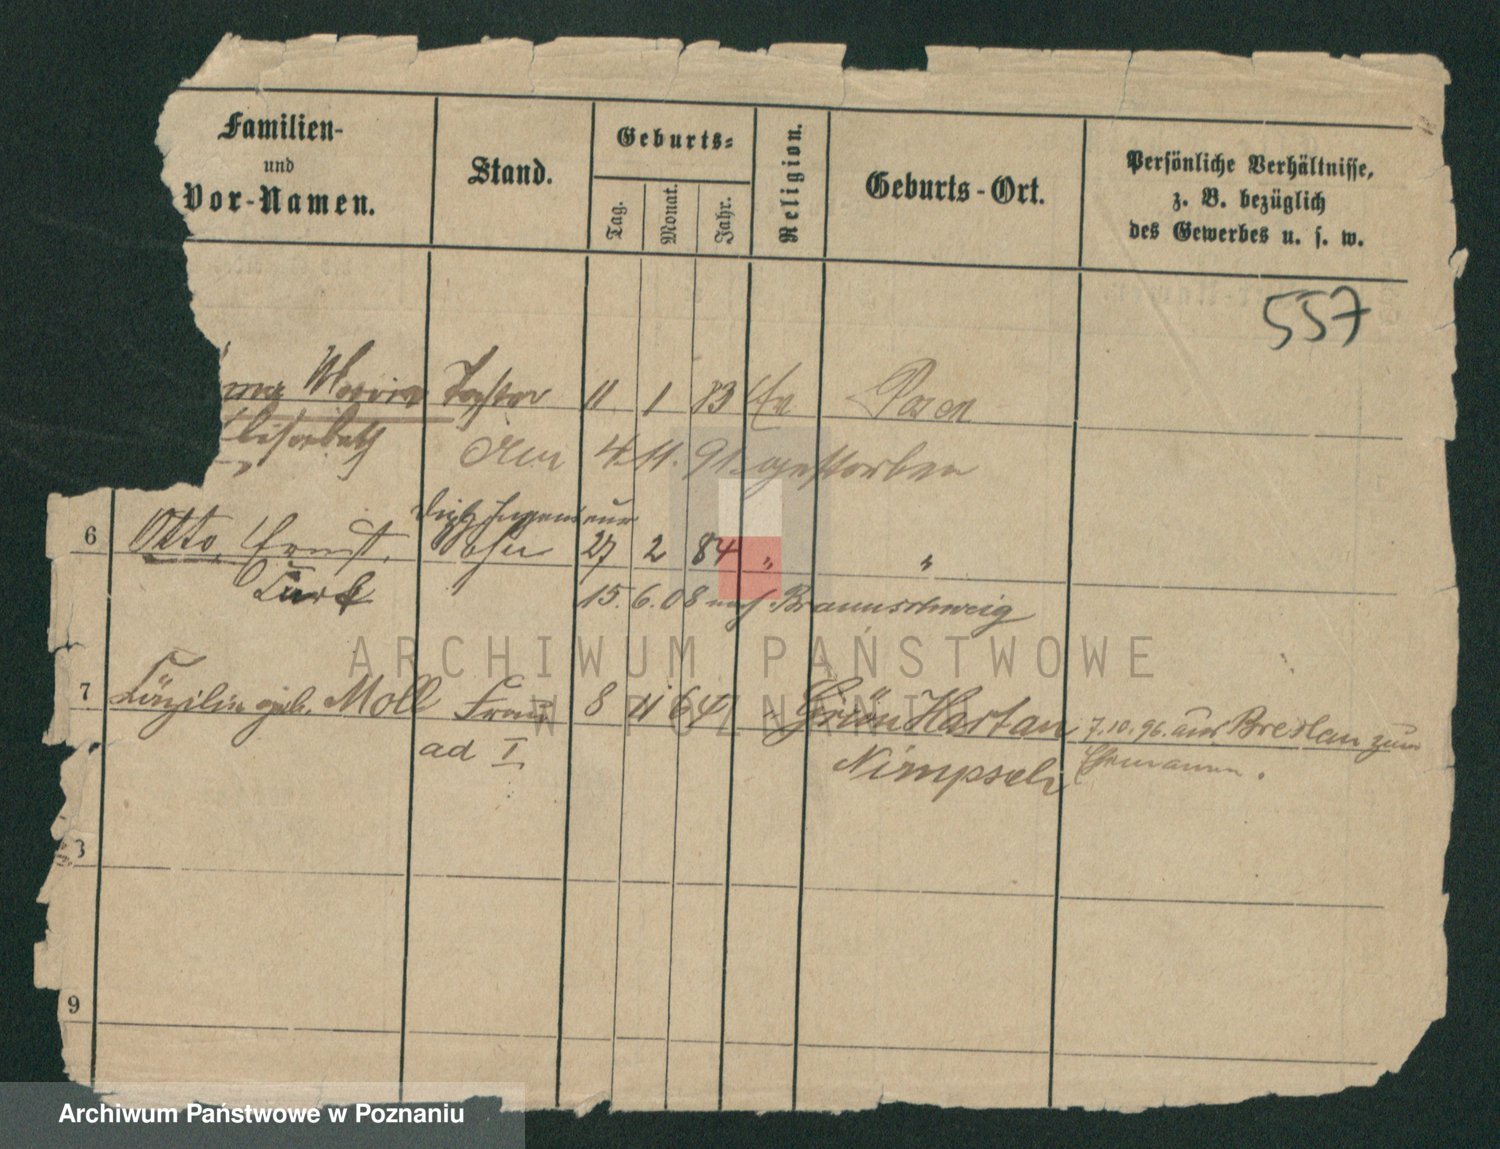 Familien-
und
Vor-Namen.
Stand.
Geburts-
Tag.
Monat.
Jahr.
Religion.
Geburts-Ort.
Persönliche Verhältnisse,
z. B. bezüglich
des Gewerbes u. s. w.
557
Tochter 11 1 83 Ev Posen
Elisabeth
4. 11. 91. gestorben
Dipl. Ingenieur
6 Otto, Ernst, Sohn 27 2 84 " "
Curt
15. 6. 08 nach Braunschweig
7 geb. Moll Frau 8 11 64 " Grün Hartau 7.10.96. aus Breslau zum
ad I. Nimpsch Ehemann.
8
9
ARCHIWUM PAŃSTWOWE
W POZNANIU
Archiwum Państwowe w Poznaniu